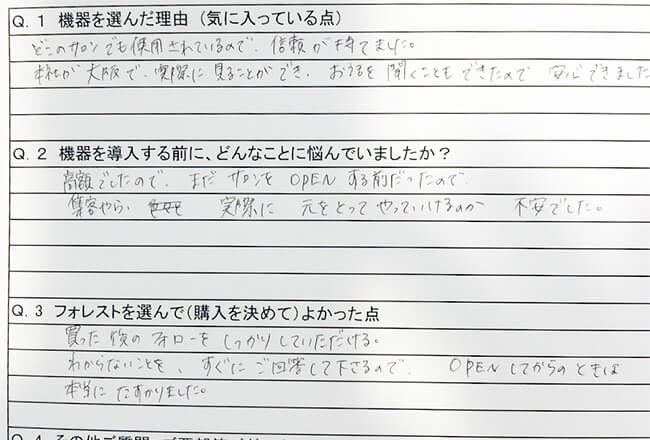 Q. 1 機器を選んだ理由 (気に入っている点)
どこのサロンでも使用されているので、信頼が持てました。
本社が大阪で、実際に見ることができ、お話を聞くこともできたので 安心できました
Q. 2 機器を導入する前に、どんなことに悩んでいましたか？
高額でしたので、まだ サロンを OPEN する前だったので、
集客やら、 実際に 元をとって やっていけるのか 不安でした。
Q. 3 フォレストを選んで(購入を決めて)よかった点
買った後の フォローを しっかりしていただける。
わからないことを、すぐに ご回答して下さるので、 OPEN してからの ときは
本当に たすかりました。